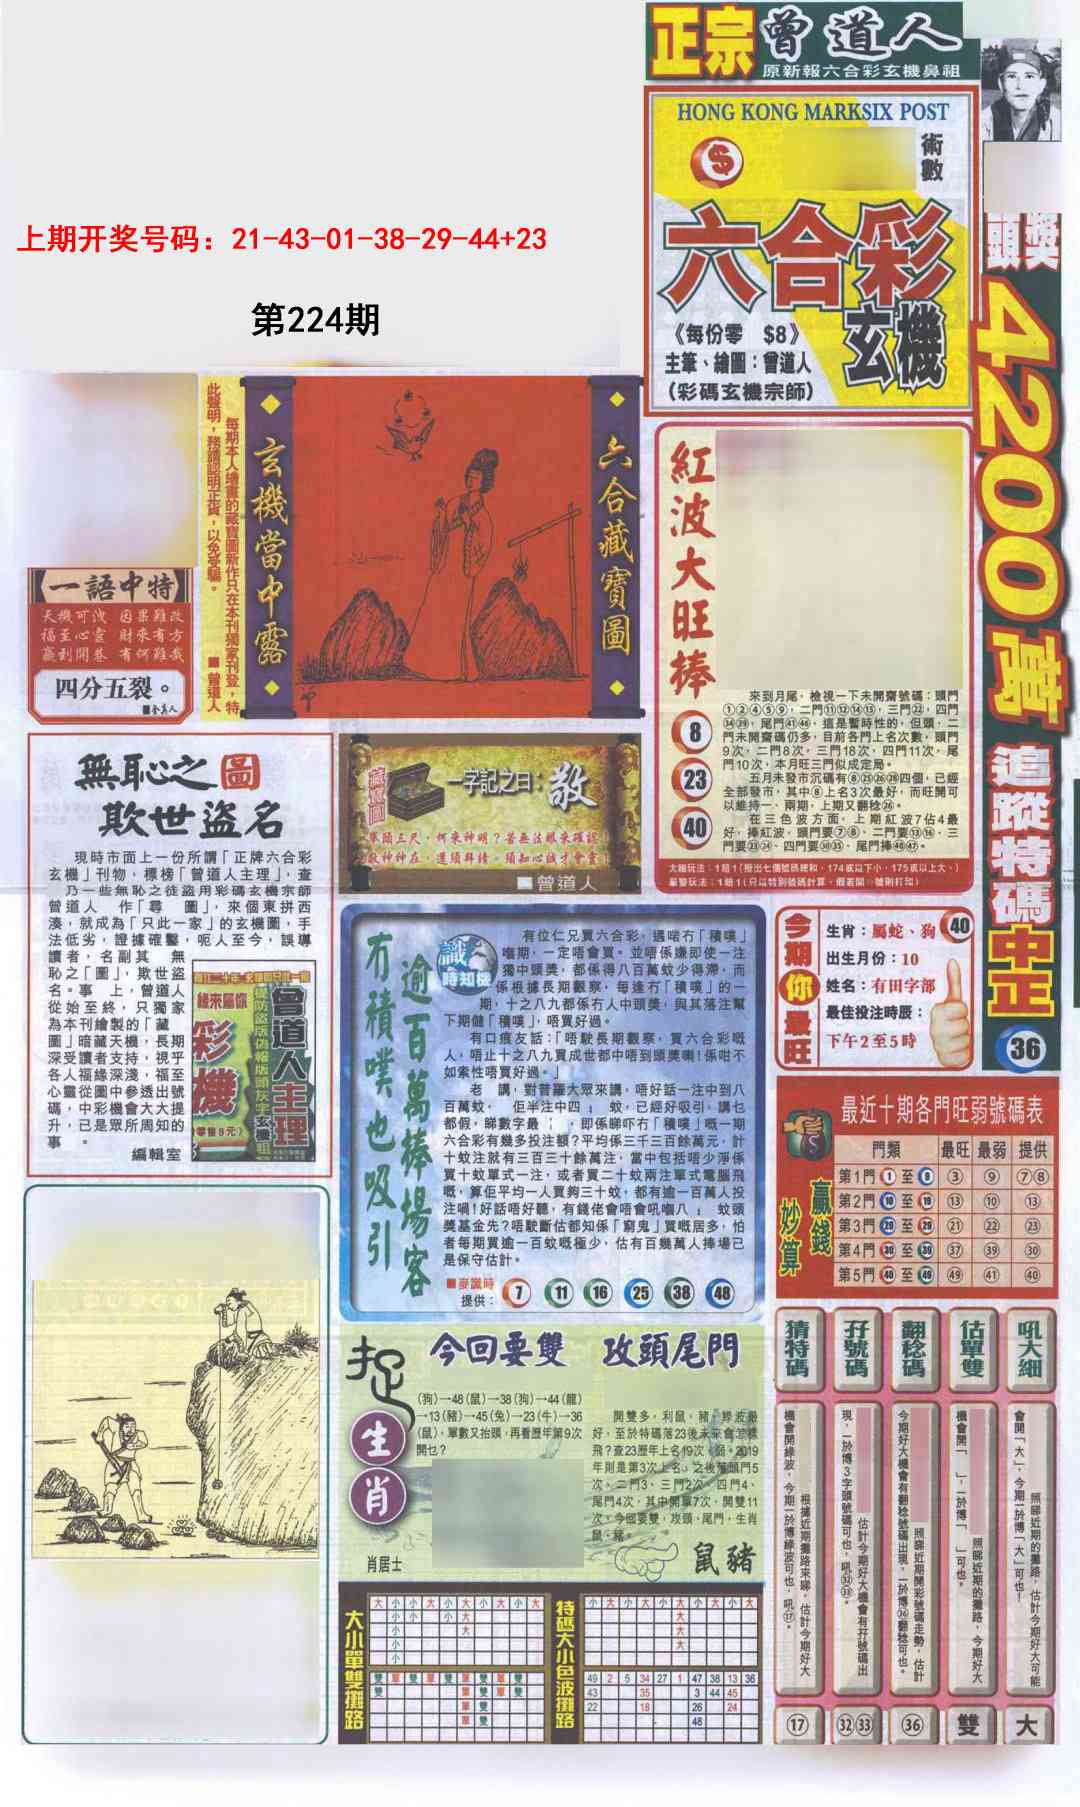 正宗曾道人
原新報六合彩玄機鼻祖
HONG KONG MARKSIX POST
術數
六合彩
玄機
《每份零 $8》
主筆、繪圖：曾道人
（彩碼玄機宗師）
頭獎
4200萬
追蹤特碼中正
36
上期开奖号码：21-43-01-38-29-44+23
第224期
每期本人繪畫的藏寶圖新作只在本刊獨家刊登，特
此聲明，務請認明正貨，以免受騙。
■曾道人
玄機當中露
六合藏寶圖
一語中特
天機可洩 因果難改
福至心靈 財來有方
贏到開巷 有何難哉
四分五裂。
紅波大旺棒
8
23
40
來到月尾，檢視一下未開齋號碼：頭門
①②④⑤⑨，二門⑪⑫⑭⑮，三門㉒，四門
㉞㊴，尾門㊶㊻，這是暫時性的，但頭、二
門未開齋碼仍多，目前各門上名次數，頭門
9次，二門8次，三門18次，四門11次，尾
門10次，本月旺三門似成定局。
五月未發市沉碼有⑧㉕㉖㉘四個，已經
全部發市，其中⑧上名3次最好，而旺開可
以維持一、兩期，上期又翻稔㉖。
在三色波方面，上期紅波7佔4最
好，捧紅波，頭門要⑦⑧，二門要⑬⑯，三
門要㉓㉔，四門要㉚㉟，尾門捧㊵㊼。
大細玩法：1賠1(攪出七個號碼總和，174或以下小，175或以上大。)
無恥之圖
欺世盜名
現時市面上一份所謂「正牌六合彩
玄機」刊物，標榜「曾道人主理」，查
乃一些無恥之徒盜用彩碼玄機宗師
曾道人 作「尋 圖」，來個東拼西
湊，就成為「只此一家」的玄機圖，手
法低劣，證據確鑿，呃人至今，誤導
讀者，名副其 無
恥之「圖」，欺世盜
名。事 上，曾道人
從始至終，只獨家
為本刊繪製的「藏
圖」暗藏天機，長期
深受讀者支持，視乎
各人福緣深淺，福至
心靈從圖中參透出號
碼，中彩機會大大提
升，已是眾所周知的
事 。
編輯室
緣來屬你
彩機
曾道人主理
(零售8元)
藏寶圖
一字記之曰：敬
舉頭三尺，何來神明？苦無法眼來確認！
敬神神在，進頭拜請，須知心誠才會靈！
曾道人
冇積噗也吸引
逾百萬捧場客
識時知機
有位仁兄買六合彩，遇啱冇「積噗」
嗰期，一定唔會買。並唔係嫌即使一注
獨中頭獎，都係得八百萬蚊少得滯，而
係根據長期觀察，每逢冇「積噗」的一
期，十之八九都係冇人中頭獎，與其落注幫
下期儲「積噗」，唔買好過。
有口痕友話：「唔駛長期觀察，買六合彩嘅
人，唔止十之八九買成世都中唔到頭獎喇！係咁不
如索性唔買好過。」
老 講，對普羅大眾來講，唔好話一注中到八
百萬蚊， 佢半注中四 蚊，已經好吸引，講乜
都假，睇數字最 ，即係睇吓冇「積噗」嘅一期
六合彩有幾多投注額？平均係三千三百餘萬元，計
十蚊注就有三百三十餘萬注，當中包括唔少淨係
買十蚊單式一注，或者買二十蚊兩注單式電腦飛
嘅，算佢平均一人買夠三十蚊，都有逾一百萬人投
注喎！好話唔好聽，有錢佬會唔會吼嗰八 蚊頭
獎基金先？唔駛斷估都知係「窮鬼」買嘅居多，怕
者每期買逾一百蚊嘅極少，估有百幾萬人捧場已
是保守估計。
■麥識時
提供：7 11 16 25 38 48
今期你最旺
生肖：屬蛇、狗 40
出生月份：10
姓名：有田字部
最佳投注時辰：
下午2至5時
贏錢妙算
最近十期各門旺弱號碼表
門類 最旺 最弱 提供
第1門 1 至 9 ③ ⑨ ⑦⑧
第2門 10 至 19 ⑬ ⑩ ⑬
第3門 20 至 29 ㉑ ㉒ ㉓
第4門 30 至 39 ㊲ ㊴ ㉚
第5門 40 至 49 ㊾ ㊶ ㊵
捉生肖
今回要雙 攻頭尾門
(狗)→48(鼠)→38(狗)→44(龍)
→13(豬)→45(兔)→23(牛)→36
(鼠)，單數又抬頭，再看歷年第9次
開乜？
開雙多，利鼠，豬，綠波最
好，至於特碼落23後未來會怎樣
飛？查23歷年上名19次，弱。2019
年則是第3次上名，之後落頭門5
次、二門3、三門2次、四門4、
尾門4次，其中開單7次，開雙11
次。今回要雙，攻頭、尾門，生肖
鼠、豬。
肖居士
鼠豬
大小單雙攤路
大 小 小 大 小 大 小 小 小 大
小 小 小 大
小 大
小
小
雙 單 雙 單 雙 單 雙 單 雙
雙 單 雙 單 雙
單 雙
單 雙
特碼大小色波攤路
小 小 小 小 小 大 小 大 小 大
大
大
大
49 2 5 34 27 1 47 38 13 36
43 35 3 44 45
22 18 26 24
48
猜特碼
根據近期攤路來睇，估計今期好大
機會開綠波，今期一於博綠波可也，吼⑰。
⑰
孖號碼
估計今期好大機會有孖號碼出
現，一於博3字頭號碼可也，吼㉜㉝。
㉜㉝
翻稔碼
照睇近期開彩號碼走勢，估計
今期好大機會有翻稔號碼出現，一於博㊱翻稔可也。
㊱
估單雙
照睇近期的攤路，今期好大
機會開「 」，一於博「 」可也。
雙
吼大細
照睇近期的攤路，估計今期好大可能
會開「大」，今期一於博「大」可也！
大